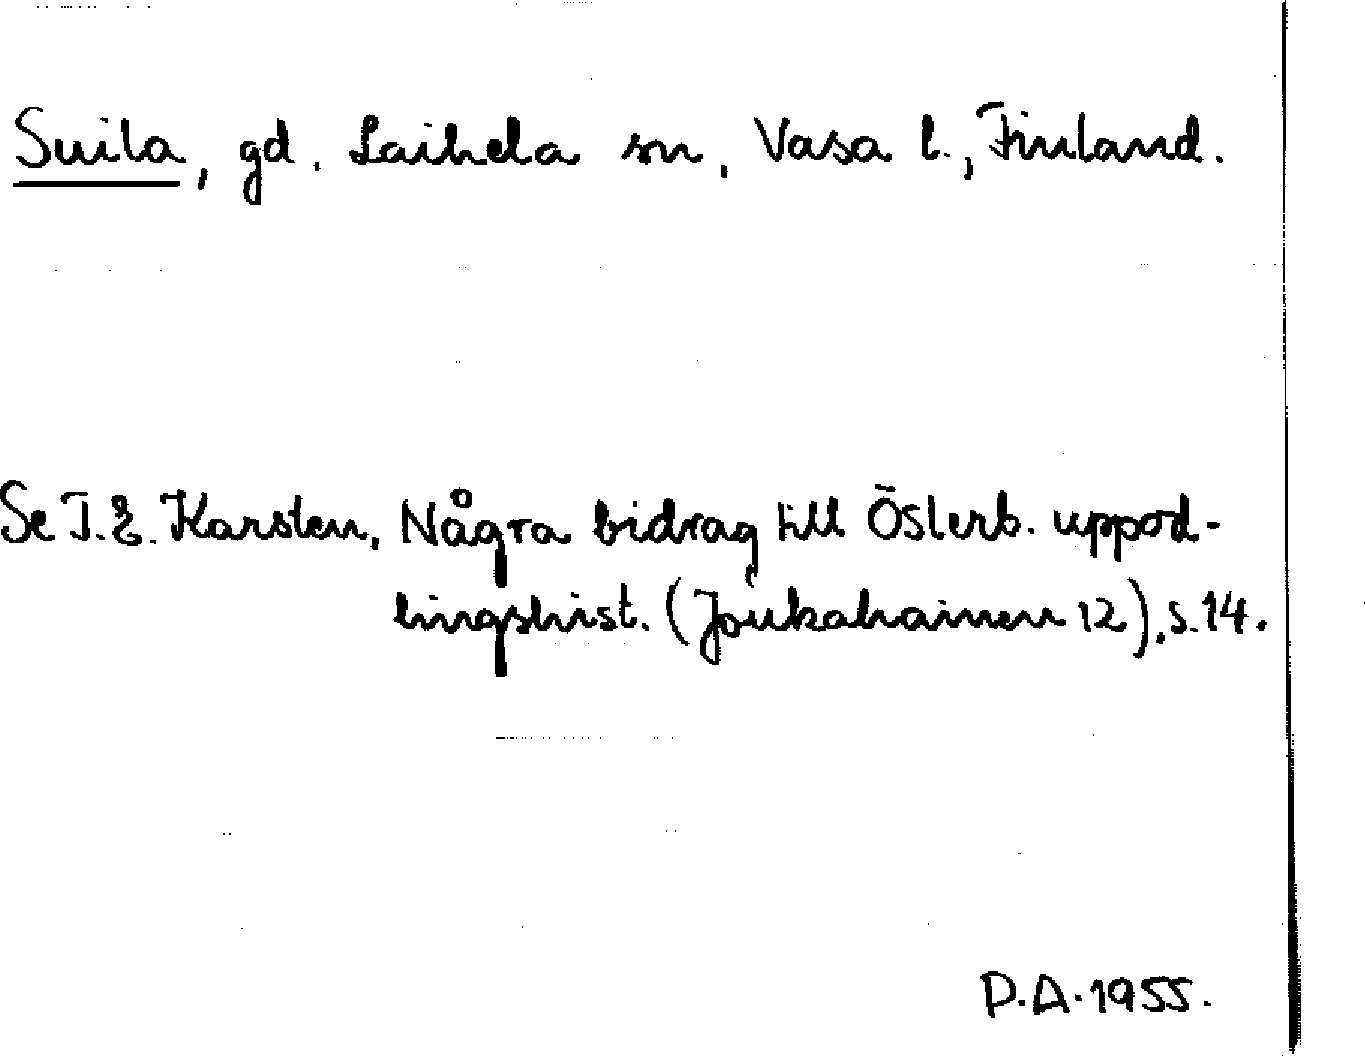 Suila, gd. Laihela sn, Vasa l., Finland.
Se T.E. Karsten, Några bidrag till Österb. uppod-
lingshist. (Joukahainen 12), s. 14.
P.A. 1955.